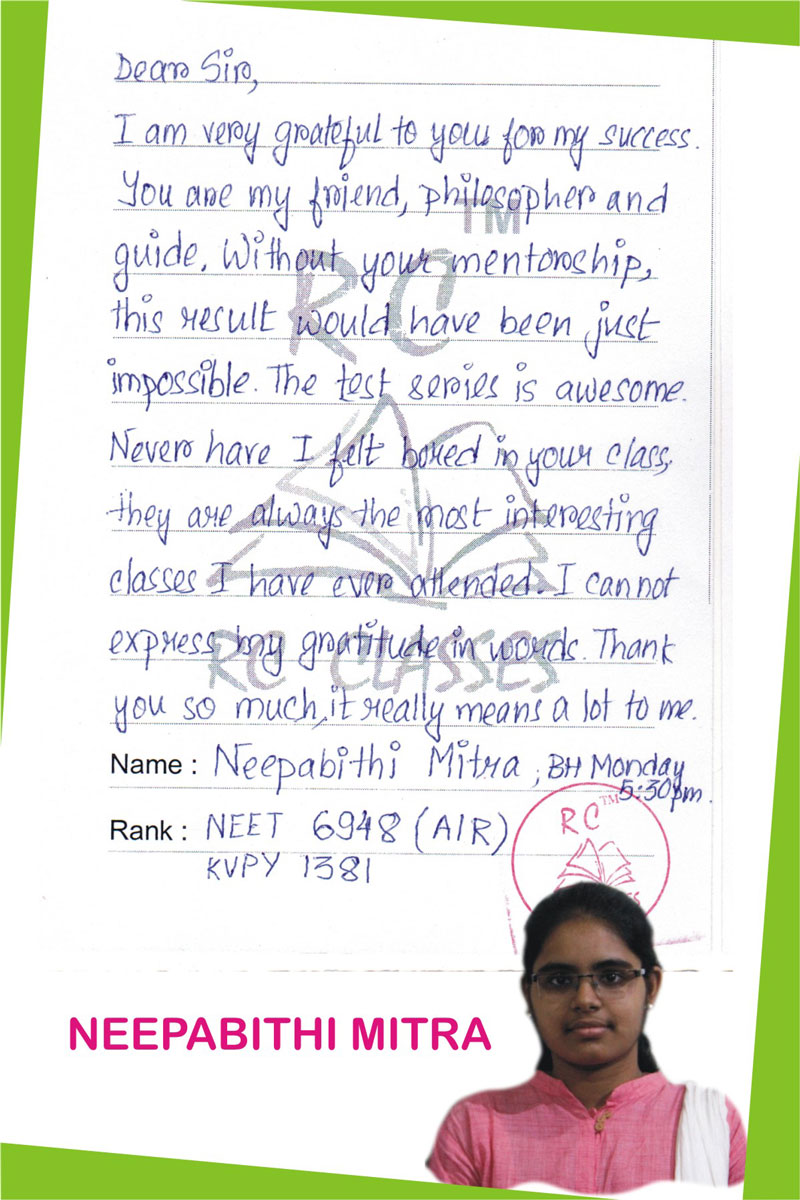 Dear Sir,
I am very grateful to you for my success.
You are my friend, philosopher and
guide. Without your mentorship,
this result would have been just
impossible. The test series is awesome.
Never have I felt bored in your class,
they are always the most interesting
classes I have ever attended. I cannot
express my gratitude in words. Thank
you so much, it really means a lot to me.
Name : Neepabithi Mitra, BH Monday
5:30pm.
Rank : NEET 6948 (AIR)
KVPY 1381
RC TM
RC CLASSES
RC TM
NEEPABITHI MITRA